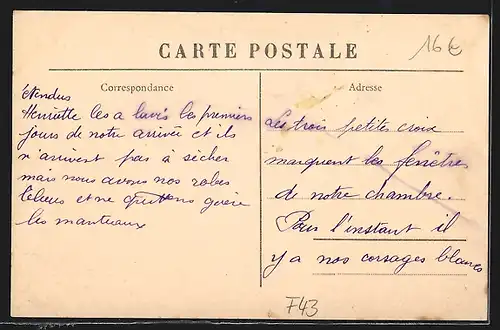 16€
CARTE POSTALE
Correspondance
étendus
Henriette les a lavés les premiers
jours de notre arrivée et ils
n'arrivent pas à sécher
mais nous avons nos robes
bleues et ne quittons guère
les manteaux
Adresse
Les trois petites croix
marquent les fenêtres
de notre chambre.
Pour l'instant il
y a nos corsages blancs
F43